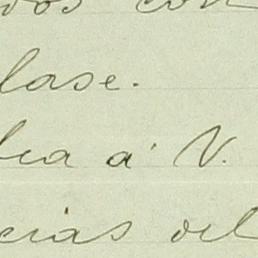 dos con
lase.
lca á V.
cias del